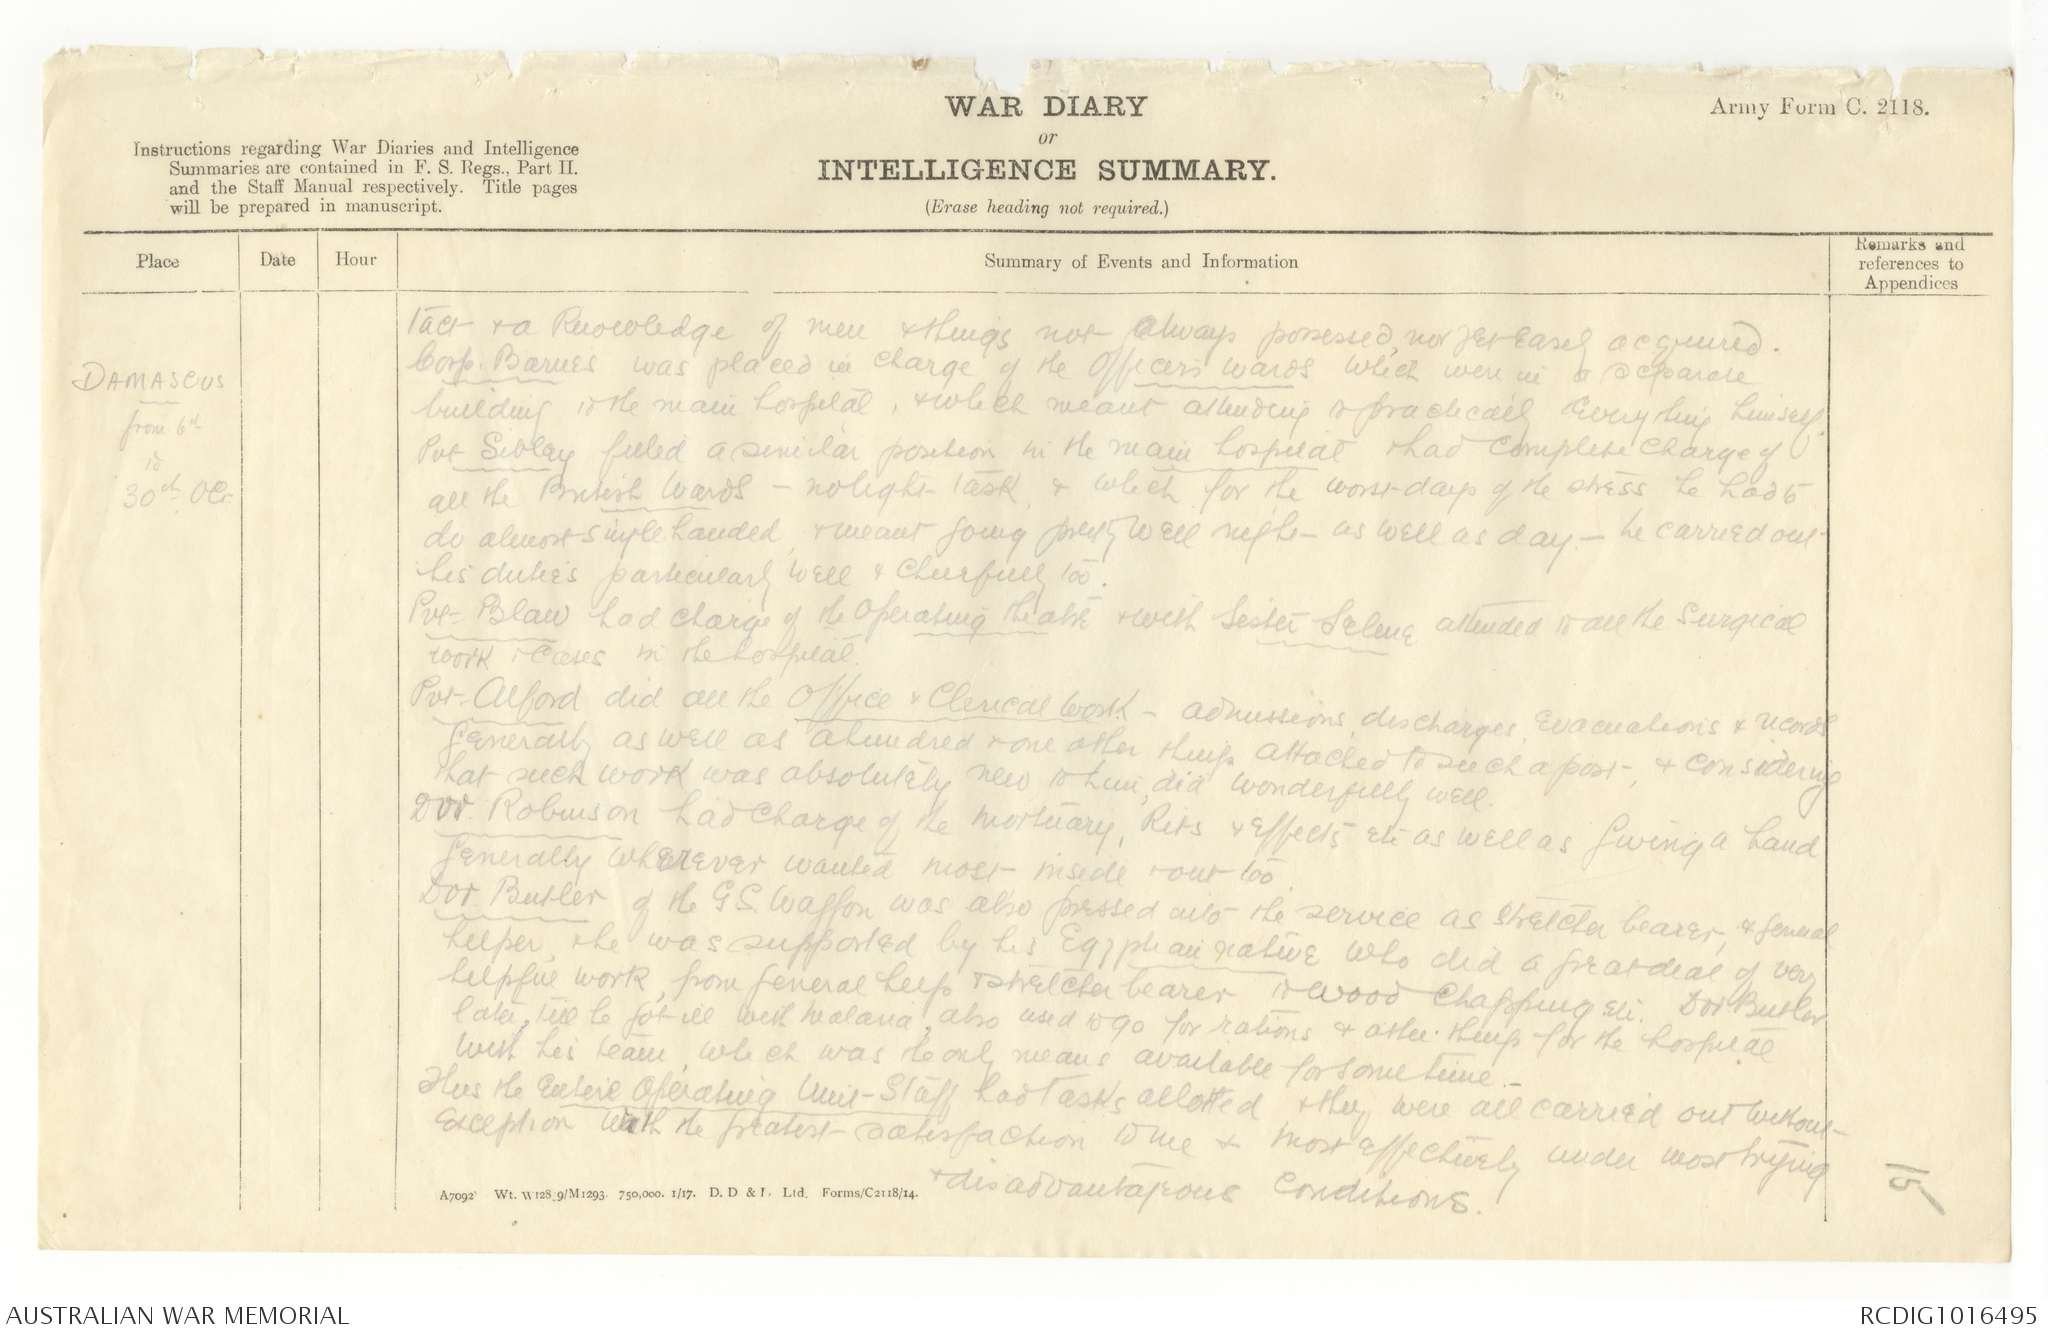 WAR DIARY
or
INTELLIGENCE SUMMARY.
(Erase heading not required.)
Army Form C. 2118.
Instructions regarding War Diaries and Intelligence
Summaries are contained in F. S. Regs., Part II.
and the Staff Manual respectively. Title pages
will be prepared in manuscript.
Place
Date
Hour
Summary of Events and Information
Remarks and
references to
Appendices
DAMASCUS
from 6th
to
30th Oct
Tact & a Knowledge of men & things not always possessed, nor yet easily acquired.
Corp. Barnes was placed in charge of the Officers wards which were in a separate
building to the main hospital, & which meant attending to practically everything himself.
Pvt Sibley filled a similar position in the main hospital & had complete charge of
all the British Wards – no light task, & which for the worst days of the stress he had to
do almost single handed, & meant going pretty well night as well as day – he carried out
his duties particularly well & cheerfully too.
Pvt Blaw had charge of the Operating theatre & with Sister Selme attended to all the Surgical
work & cases in the hospital.
Pvt Alford did all the Office & Clerical work – admissions, discharges, evacuations & records
generally as well as a hundred & one other things attached to such a post, & considering
that such work was absolutely new to him, did wonderfully well.
Dvr. Robinson had charge of the Mortuary, Kits & effects etc as well as giving a hand
generally wherever wanted most inside & out too.
Dvr Butler of the G.S. Waggon was also pressed into the service as stretcher bearer, & general
helper, & he was supported by his Egyptian native who did a great deal of very
helpful work, from general help & stretcher bearer to wood chopping etc. Dvr Butler
later, till he got ill with malaria, also used to go for rations & other things for the hospital
with his team, which was the only means available for sometime.–
Thus the entire Operating Unit Staff had tasks allotted & they were all carried out without
exception with the greatest satisfaction to me & most effectively under most trying
& disadvantageous conditions.
A7092 Wt. W128_9/M1293. 750,000. 1/17. D. D & L. Ltd. Forms/C2118/14.
15
AUSTRALIAN WAR MEMORIAL
RCDIG1016495